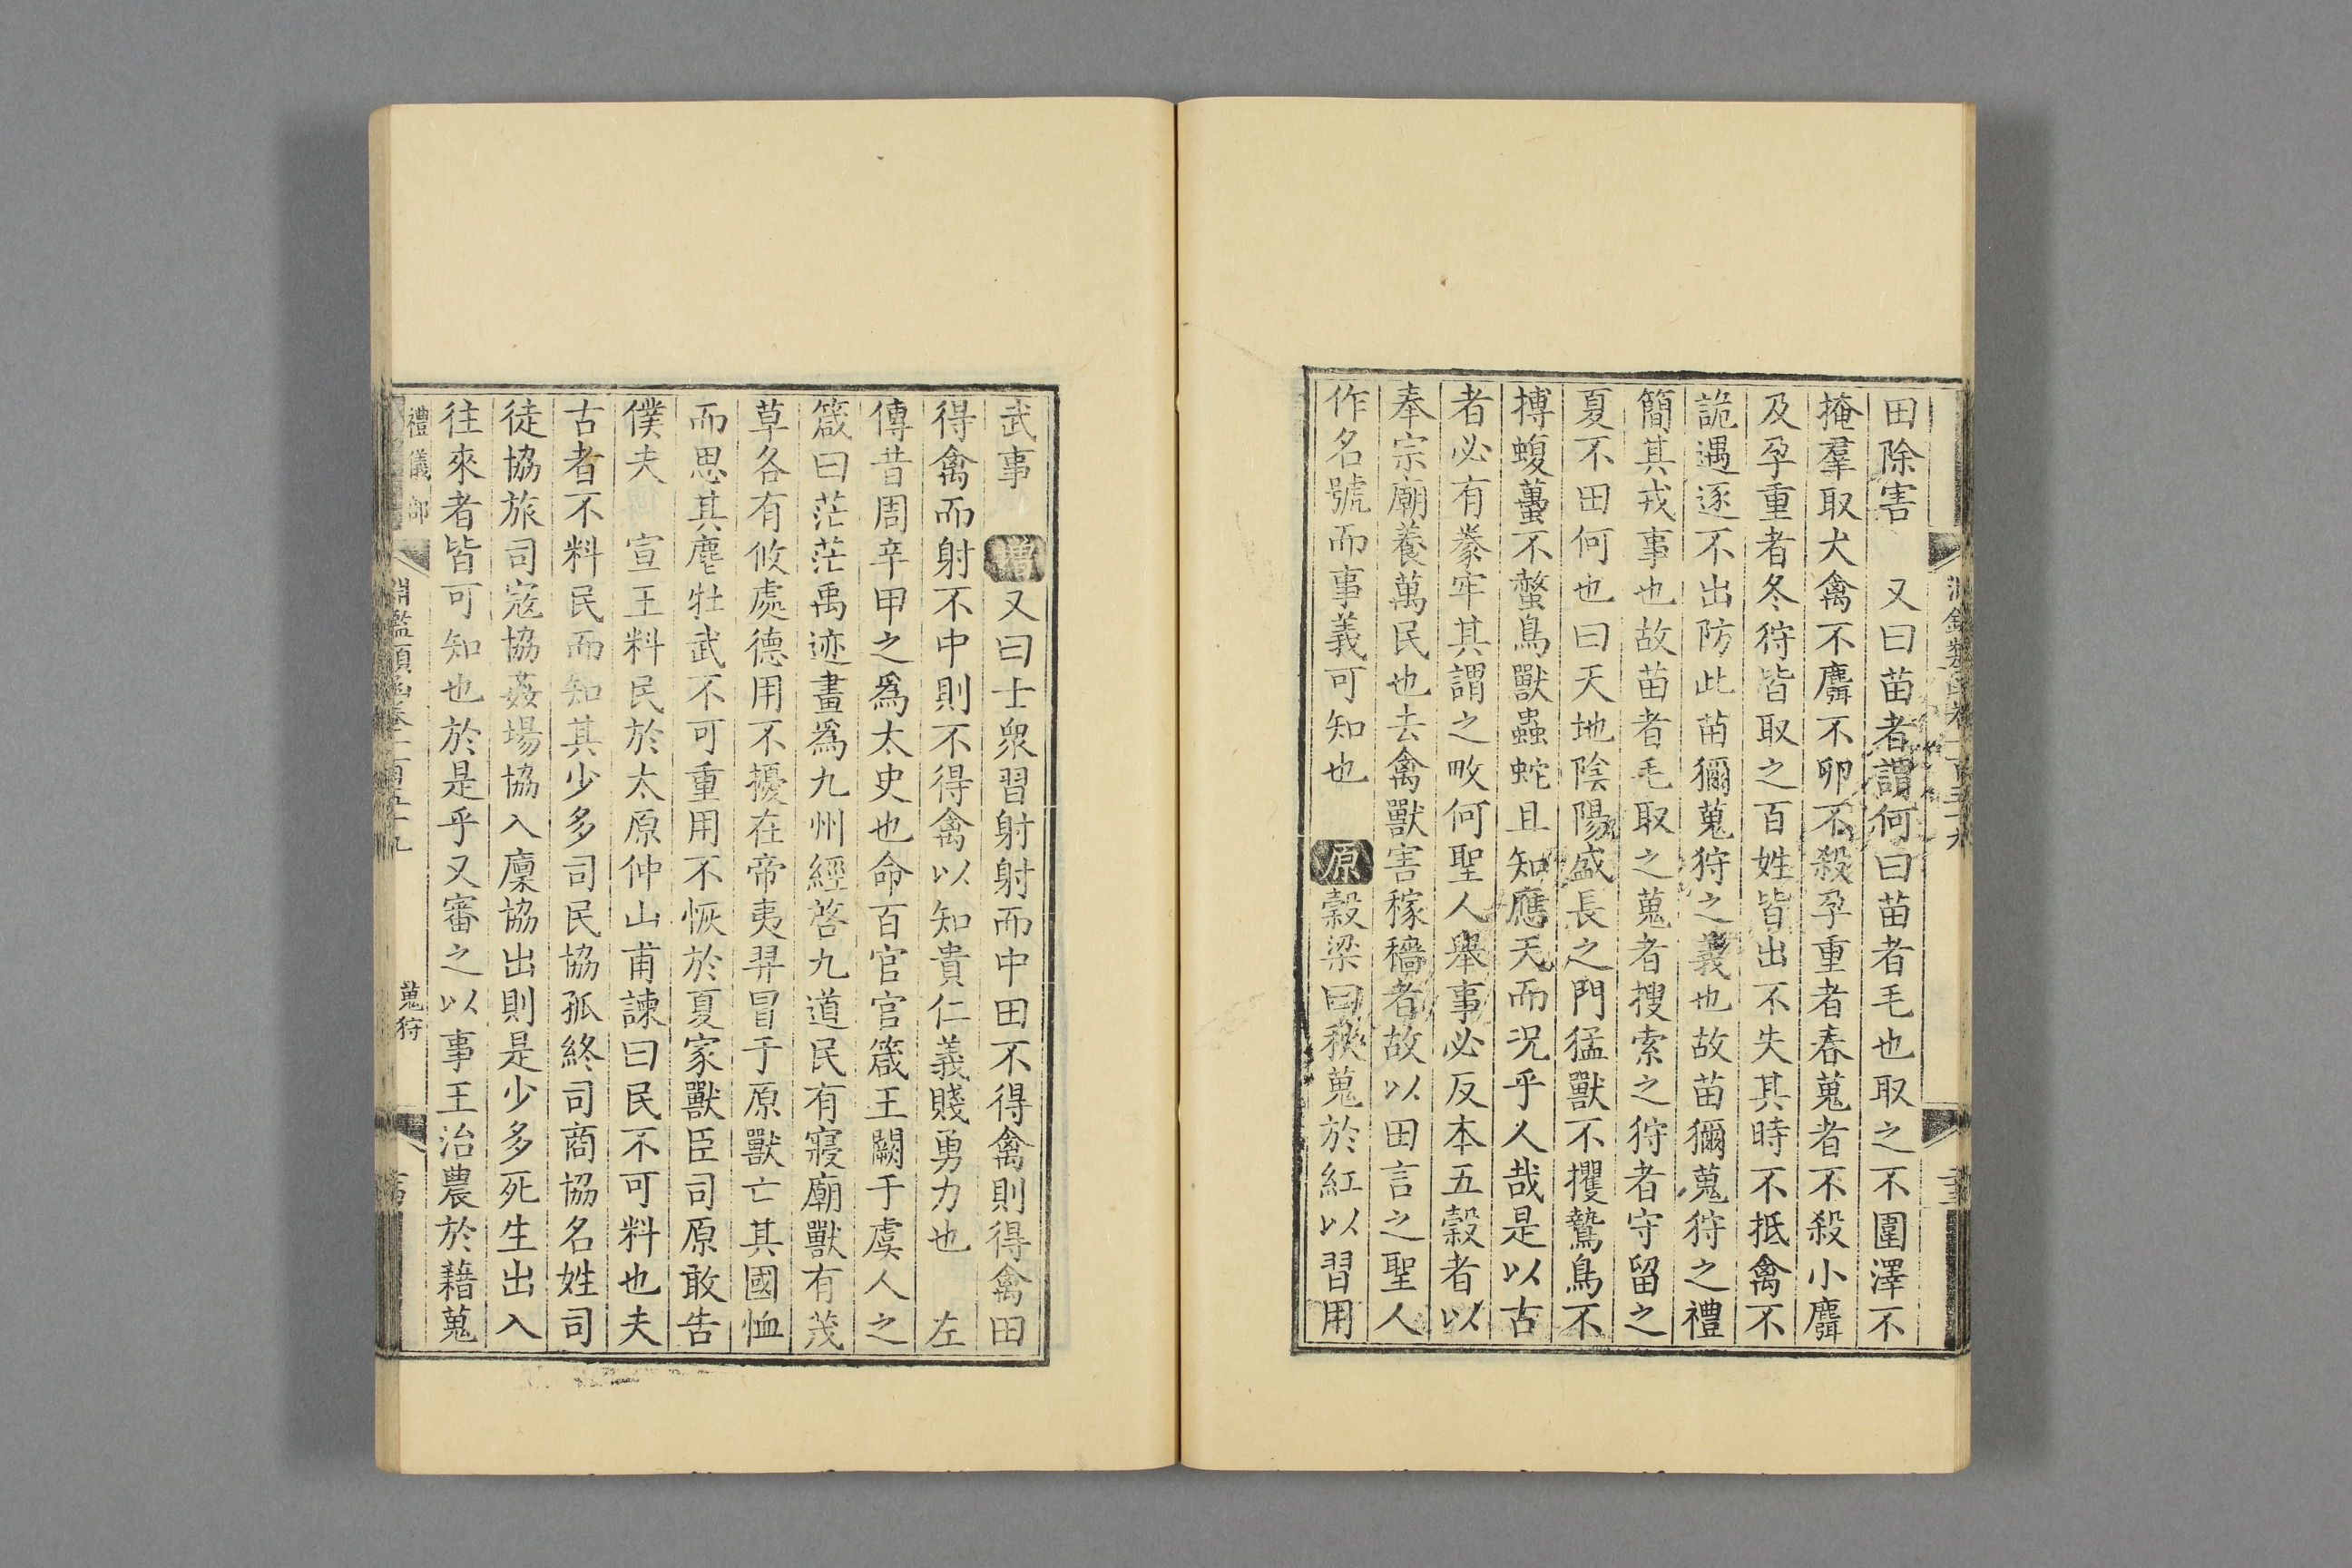 田除害　又曰苗者謂何曰苗者毛也取之不圍澤不
掩羣取犬禽不麛不卵不殺孕重者春蒐者不殺小麛
及孕重者冬狩皆取之百姓皆出不失其時不抵禽不
詭遇逐不出防此苗獮蒐狩之義也故苗獮蒐狩之禮
簡其戎事也故苗者毛取之蒐者搜索之狩者守留之
夏不田何也曰天地陰陽盛長之門猛獸不攫鷙鳥不
搏蝮蠆不螫鳥獸蟲蛇且知應天而況乎人哉是以古
者必有豢牢其謂之畋何聖人舉事必反本五穀者以
奉宗廟養萬民也去禽獸害稼穡者故以田言之聖人
作名號而事義可知也　原穀梁曰秋蒐於紅以習用
武事　增又曰士衆習射射而中田不得禽則得禽田
得禽而射不中則不得禽以知貴仁義賤勇力也　左
傳昔周辛甲之爲太史也命百官官箴王闕于虞人之
箴曰茫茫禹迹畫爲九州經啓九道民有寢廟獸有茂
草各有攸處德用不擾在帝夷羿冒于原獸亡其國恤
而思其麀牡武不可重用不恢於夏家獸臣司原敢告
僕夫　宣王料民於太原仲山甫諫曰民不可料也夫
古者不料民而知其少多司民協孤終司商協名姓司
徒協旅司寇協姦場協入廩協出則是少多死生出入
往來者皆可知也於是乎又審之以事王治農於藉蒐
禮儀部
淵鑑類函卷一百五十九
蒐狩